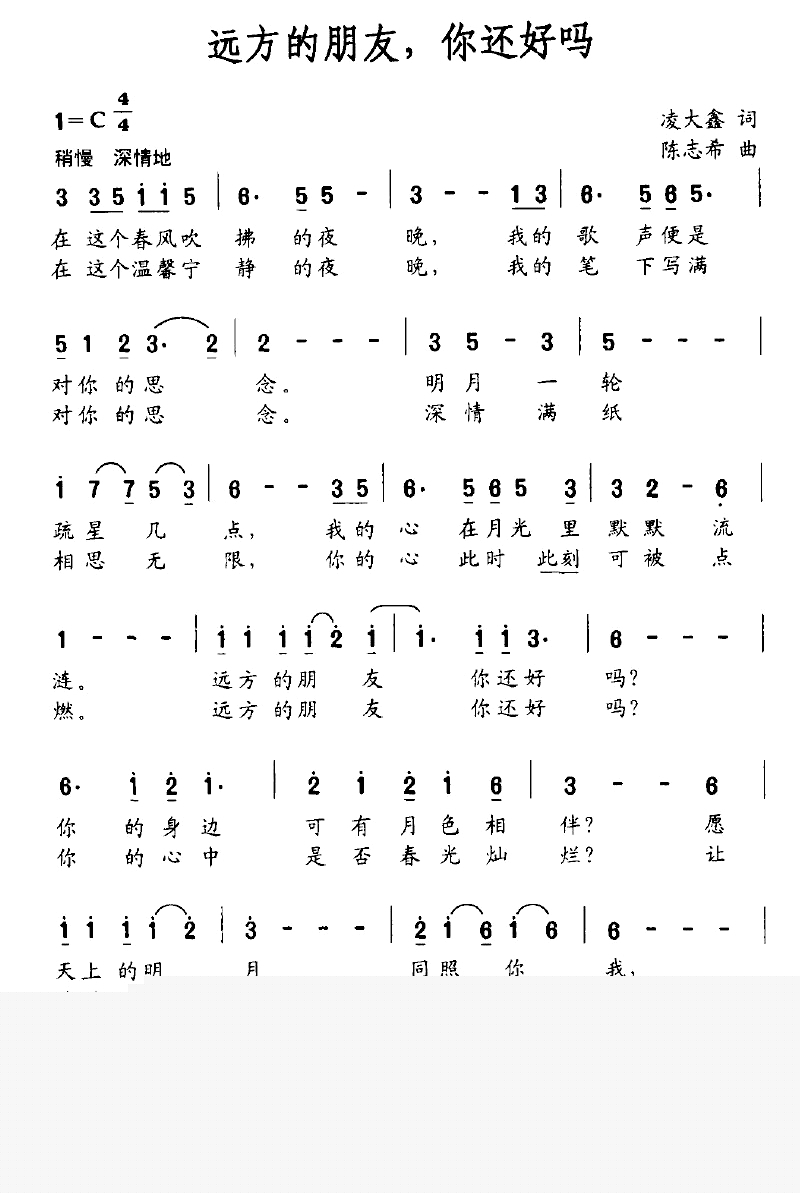 远方的朋友，你还好吗
1=C 4/4
凌大鑫 词
稍慢 深情地
陈志希 曲
3 35 i i 5 | 6· 55 - | 3 - - 13 | 6· 5 6 5· |
在 这个春风吹 拂 的夜 晚， 我的 歌 声便是
在 这个温馨宁 静 的夜 晚， 我的 笔 下写满
5 1 2 3· 2 | 2 - - - | 3 5 - 3 | 5 - - - |
对你 的思 念。 明月 一 轮
对你 的思 念。 深情 满 纸
i 7 7 5 3 | 6 - - 35 | 6· 5 6 5 3 | 3 2 - 6
疏星 几 点， 我的 心 在月光 里 默默 流
相思 无 限， 你的 心 此时 此刻 可被 点
1 - - - | i i i i 2 i | i· i i 3· | 6 - - - |
涟。 远方 的朋 友 你还好 吗？
燃。 远方 的朋 友 你还好 吗？
6· i 2 i· | 2 i 2 i 6 | 3 - - 6 |
你 的身边 可有月色相 伴？ 愿
你 的心中 是否春光灿 烂？ 让
i i i i 2 | 3 - - - | 2 i 6 i 6 | 6 - - - |
天上 的明 月 同照 你 我，